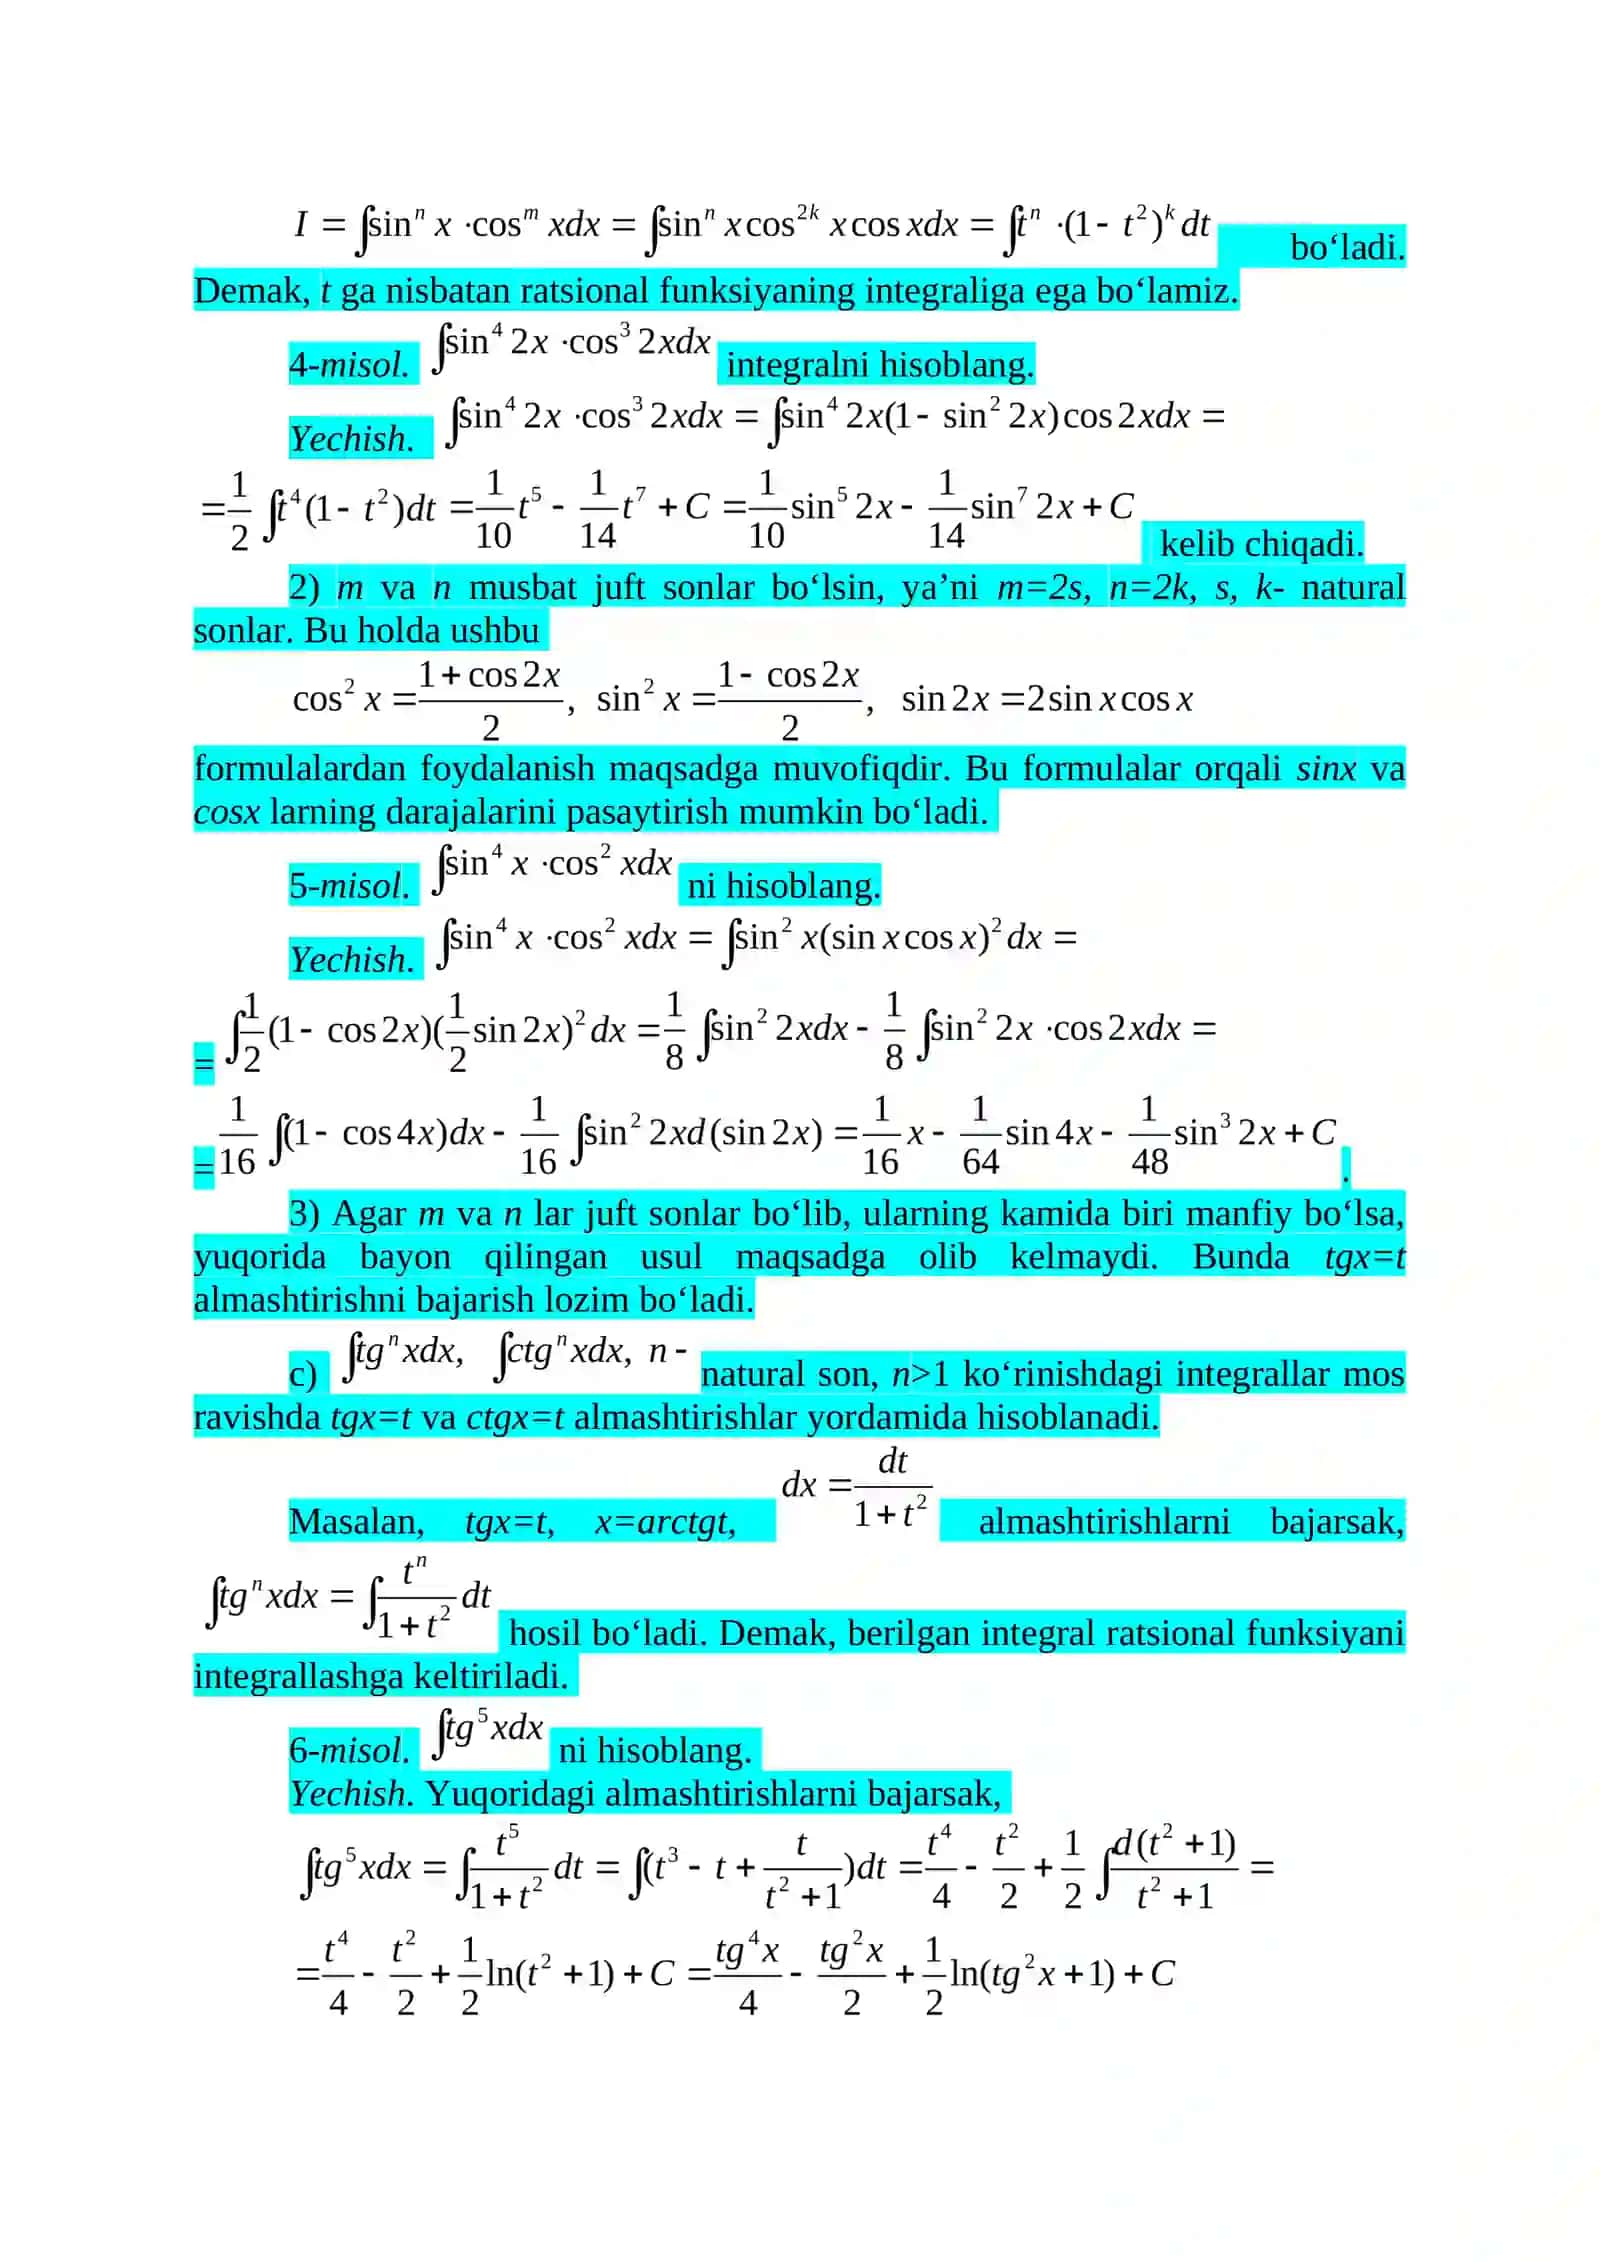 I = ∫sinⁿ x ·cosᵐ xdx = ∫sinⁿ x cos²ᵏ x cos xdx = ∫tⁿ ·(1− t²)ᵏ dt bo‘ladi.
Demak, t ga nisbatan ratsional funksiyaning integraliga ega bo‘lamiz.
4-misol. ∫sin⁴ 2x ·cos³ 2xdx integralni hisoblang.
Yechish. ∫sin⁴ 2x ·cos³ 2xdx = ∫sin⁴ 2x(1− sin² 2x)cos 2xdx =
= 1/2 ∫t⁴(1− t²)dt = 1/10 t⁵ − 1/14 t⁷ + C = 1/10 sin⁵ 2x − 1/14 sin⁷ 2x + C kelib chiqadi.
2) m va n musbat juft sonlar bo‘lsin, ya’ni m=2s, n=2k, s, k- natural
sonlar. Bu holda ushbu
cos² x = (1+ cos 2x)/2, sin² x = (1− cos 2x)/2, sin 2x = 2sin x cos x
formulalardan foydalanish maqsadga muvofiqdir. Bu formulalar orqali sinx va
cosx larning darajalarini pasaytirish mumkin bo‘ladi.
5-misol. ∫sin⁴ x ·cos² xdx ni hisoblang.
Yechish. ∫sin⁴ x ·cos² xdx = ∫sin² x(sin x cos x)² dx =
= ∫1/2(1− cos 2x)(1/2 sin 2x)² dx = 1/8 ∫sin² 2xdx − 1/8 ∫sin² 2x ·cos 2xdx =
= 1/16 ∫(1− cos 4x)dx − 1/16 ∫sin² 2xd(sin 2x) = 1/16 x − 1/64 sin 4x − 1/48 sin³ 2x + C.
3) Agar m va n lar juft sonlar bo‘lib, ularning kamida biri manfiy bo‘lsa,
yuqorida bayon qilingan usul maqsadga olib kelmaydi. Bunda tgx=t
almashtirishni bajarish lozim bo‘ladi.
c) ∫tgⁿxdx, ∫ctgⁿxdx, n − natural son, n>1 ko‘rinishdagi integrallar mos
ravishda tgx=t va ctgx=t almashtirishlar yordamida hisoblanadi.
Masalan, tgx=t, x=arctgt, dx = dt/(1+ t²) almashtirishlarni bajarsak,
∫tgⁿxdx = ∫tⁿ/(1+ t²) dt hosil bo‘ladi. Demak, berilgan integral ratsional funksiyani
integrallashga keltiriladi.
6-misol. ∫tg⁵xdx ni hisoblang.
Yechish. Yuqoridagi almashtirishlarni bajarsak,
∫tg⁵xdx = ∫t⁵/(1+ t²) dt = ∫(t³ − t + t/(t² +1))dt = t⁴/4 − t²/2 + 1/2 ∫d(t² +1)/(t² +1) =
= t⁴/4 − t²/2 + 1/2 ln(t² +1) + C = tg⁴x/4 − tg²x/2 + 1/2 ln(tg²x +1) + C